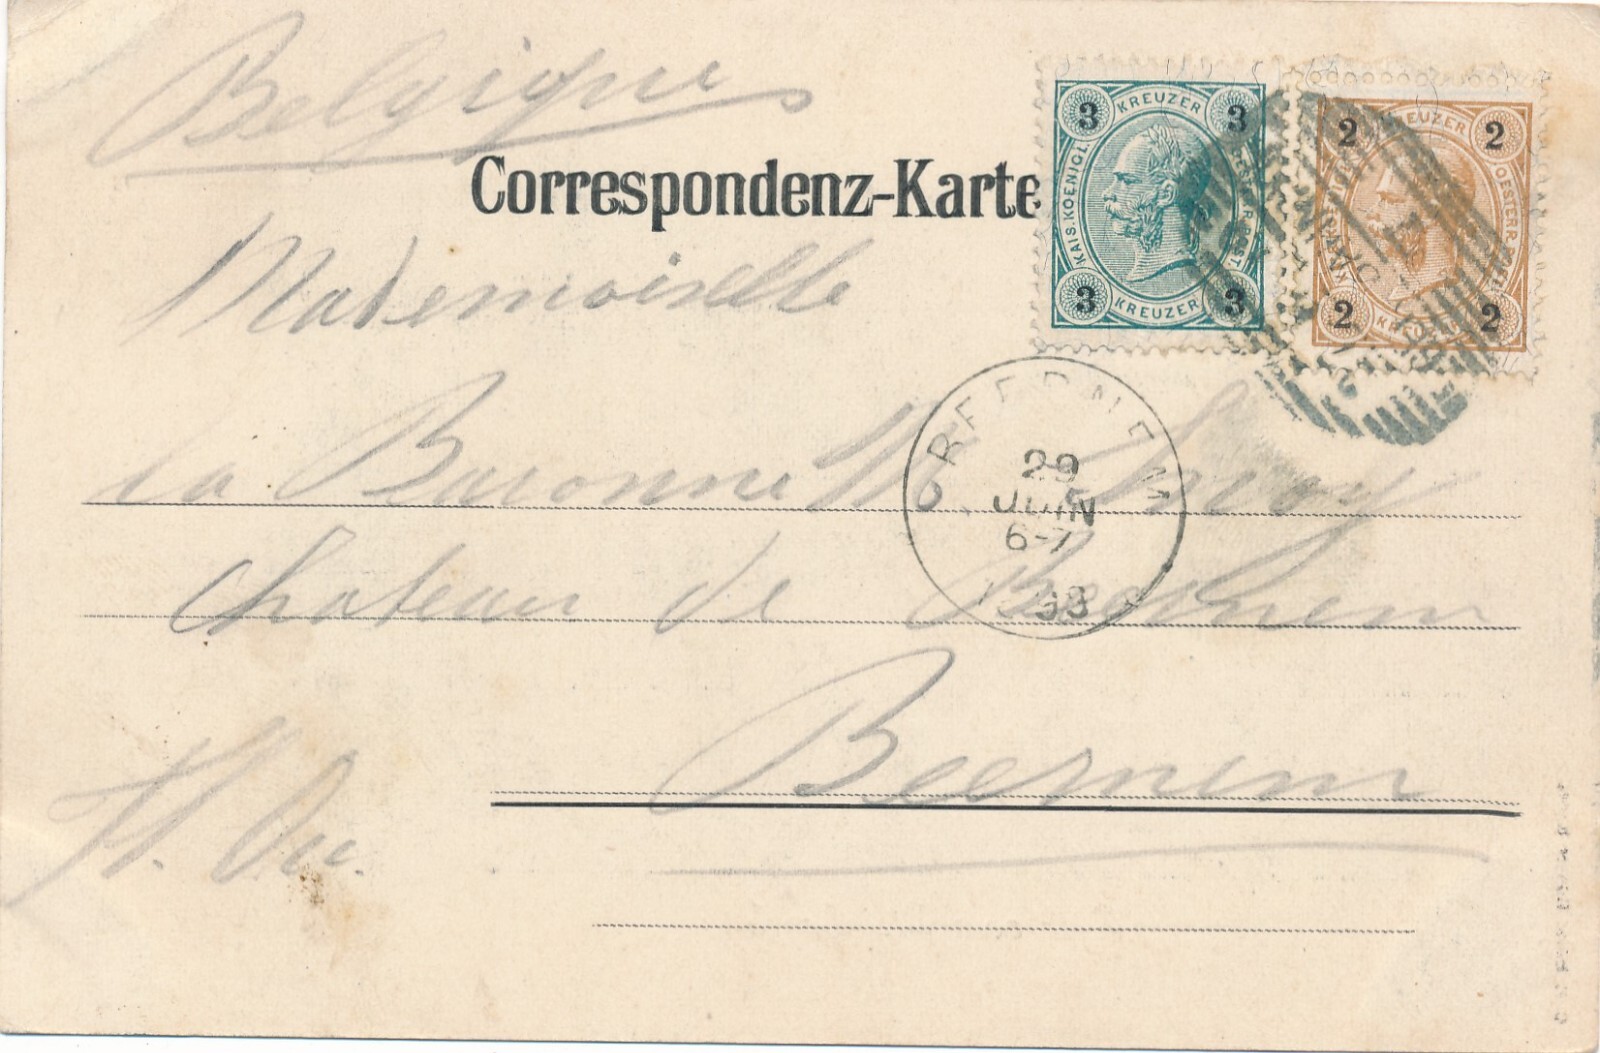 Belgique
Correspondenz-Karte
3 KREUZER 3
KAIS. KOENIGL. OESTERR. POST.
3 KREUZER 3
2 KREUZER 2
OESTERR. POST.
2 KREUZER 2
Mademoiselle
la Baronne
29
JUIN
6-7
98
Chateau de Beernem
Beernem